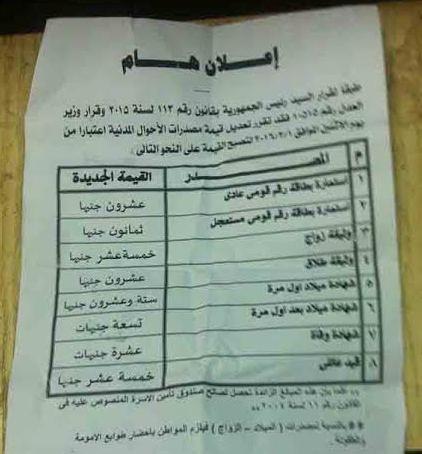 إعلان هام
طبقا لقرار السيد رئيس الجمهورية بقانون رقم ١١٣ لسنة ٢٠١٥ وقرار وزير
العدل رقم فقد تقرر تعديل قيمة مصدرات الأحوال المدنية اعتبارا من
يوم الاثنين الموافق ٢٠١٦/٢/١ لتصبح القيمة على النحو التالى :
م المصدر القيمة الجديدة
١ استمارة بطاقة رقم قومى عادى عشرون جنيها
٢ استمارة بطاقة رقم قومى مستعجل ثمانون جنيها
٣ وثيقة زواج خمسة عشر جنيها
٤ وثيقة طلاق عشرون جنيها
٥ شهادة ميلاد اول مرة ستة وعشرون جنيها
٦ شهادة ميلاد بعد اول مرة تسعة جنيهات
٧ شهادة وفاة عشرة جنيهات
٨ قيد عائلى خمسة عشر جنيها
علما بان هذه المبالغ الزائدة تحصل لصالح صندوق تأمين الاسرة المنصوص عليه فى
القانون رقم ١١ لسنة ٢٠٠٤
** بالنسبة لمصدرات ( الميلاد - الزواج ) فيلزم المواطن باحضار طوابع الامومة
والطفولة